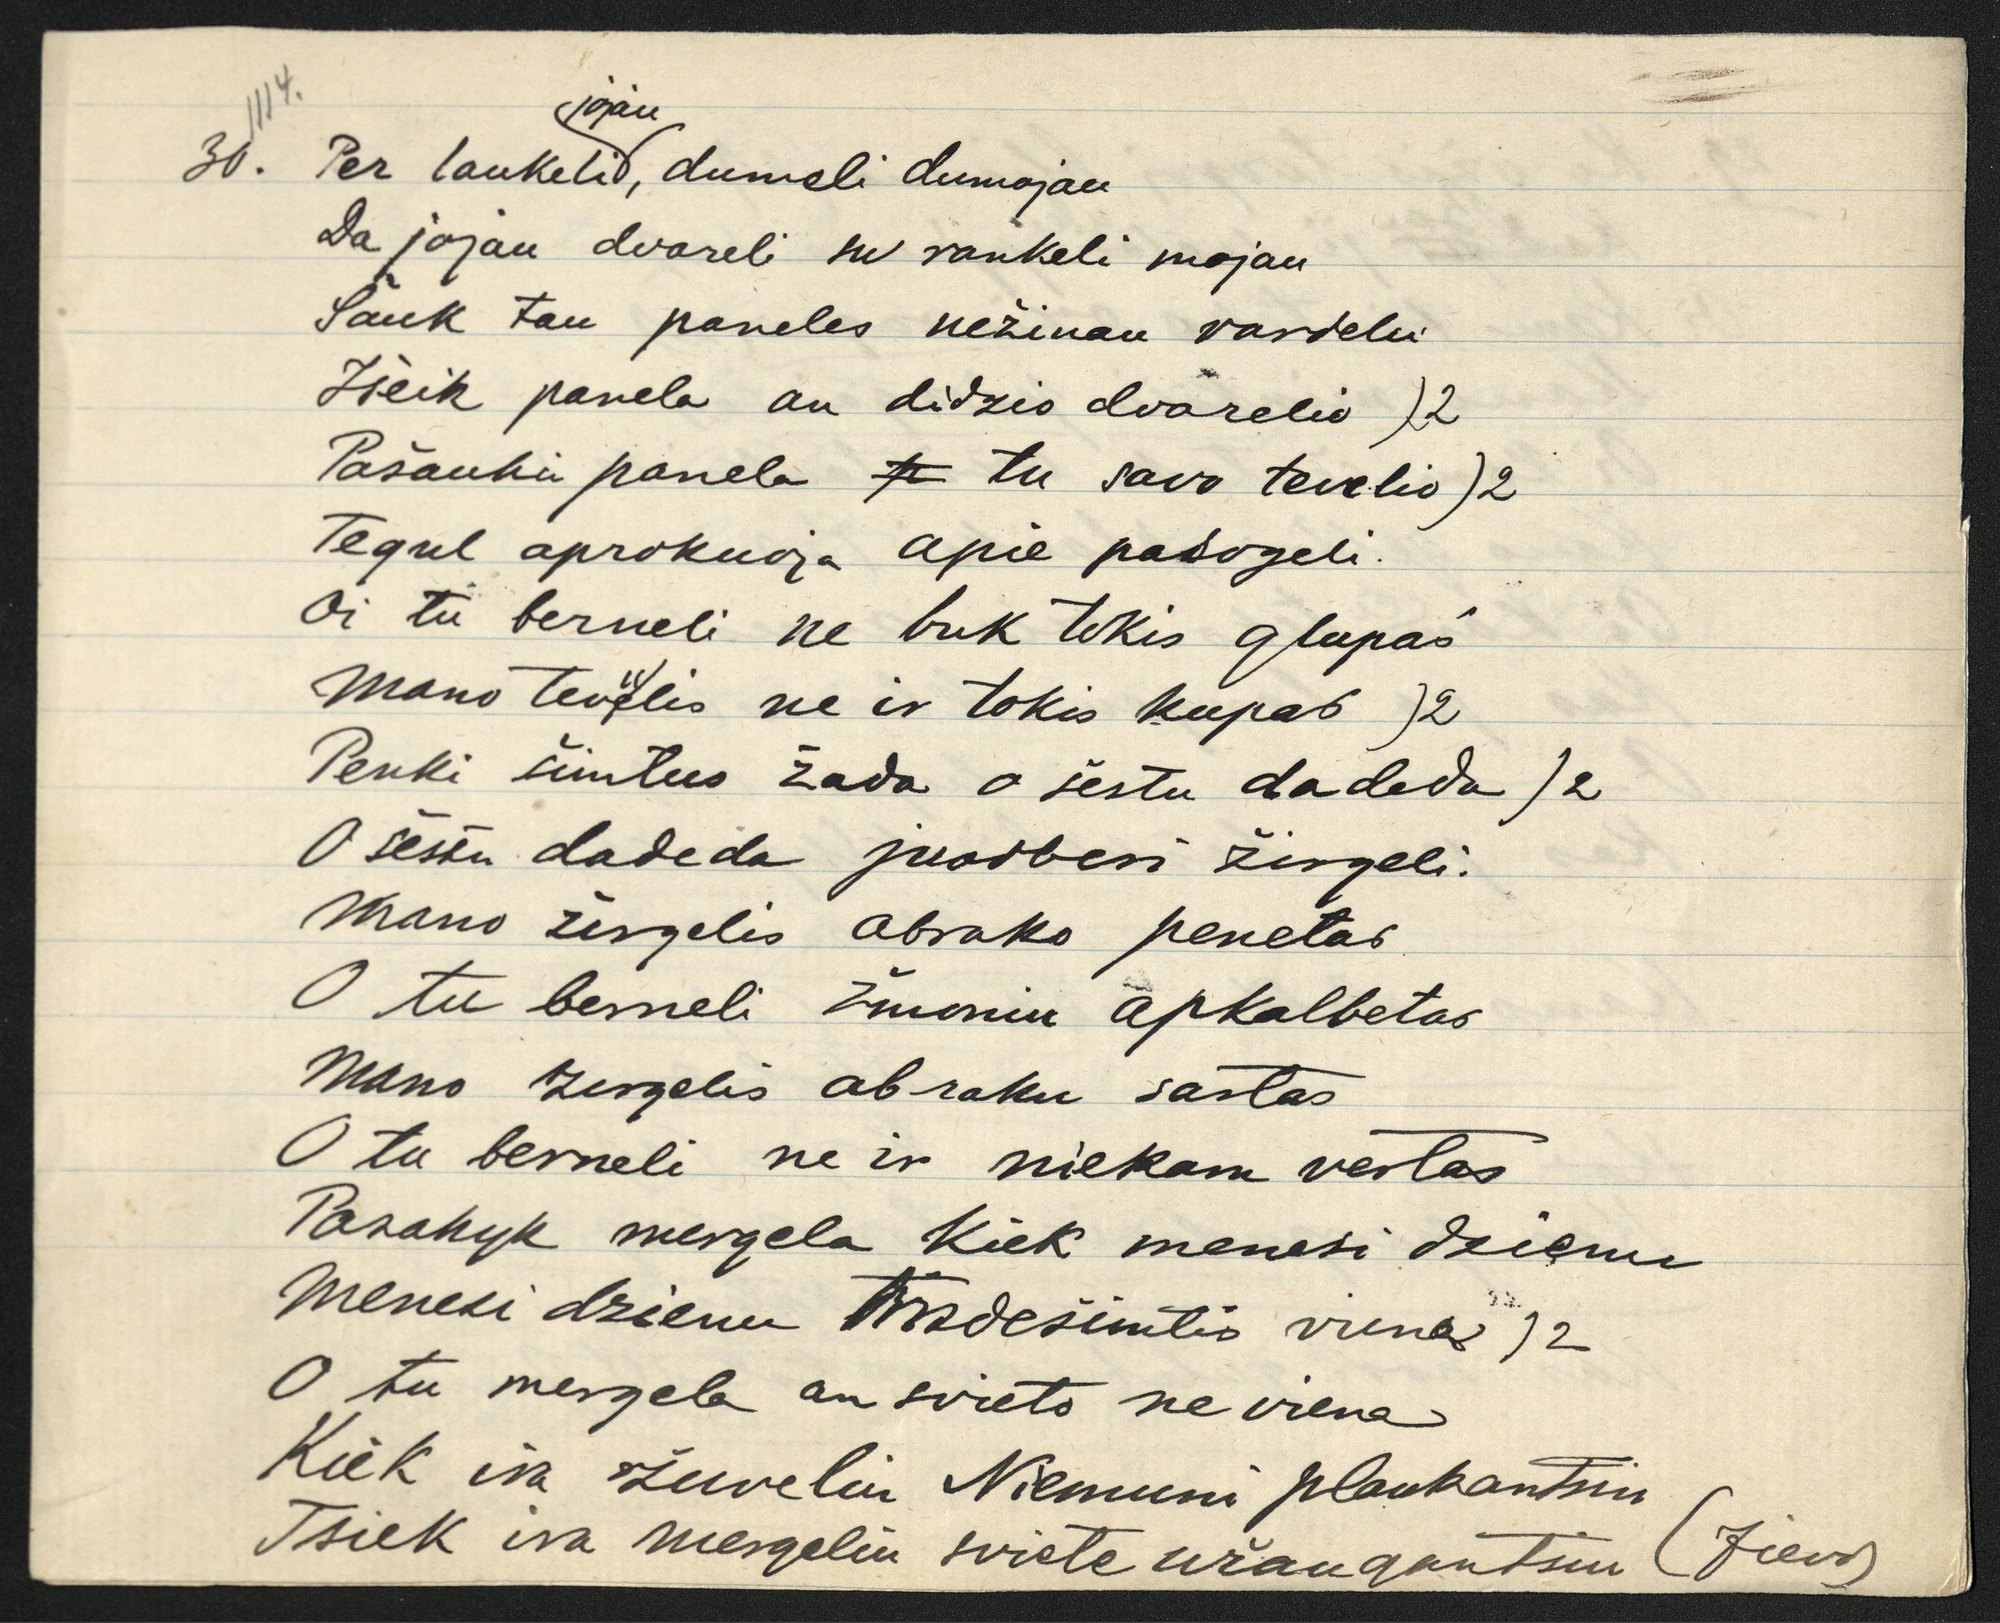 1114.
30. Per laukeli jojau, dumeli dumojau
Da jojau dvareli su rankeli mojau
Šauk tau paneles nežinau vardeliu
Išeik panela an didzio dvarelio )2
Pašaukii panela tu savo tevelio )2
Tegul aprokuoja apie pasogeli.
Oi tu berneli ne buk tokis glupas
Mano tevelis ne ir tokis kupas )2
Penki šimtus žada o šestu dadeda )2
O šestu dadeda juodberi žirgeli.
Mano žirgelis abrako penetas
O tu berneli žmoniu apkalbetas
Mano zirgelis abraku sartas
O tu berneli ne ir niekam vertas
Pasakyk mergela kiek menesi dzienu
Menesi dzienu trisdešimtis viena )2
O tu mergela an svieto ne viena
Kiek ira žuveliu Niemuni plaukantsiu
Tsiek ira mergeliu sviete užaugantsiu